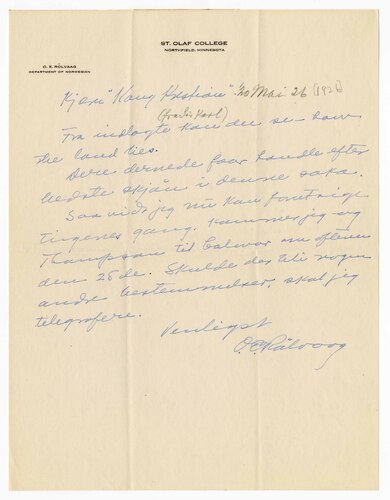 ST. OLAF COLLEGE
NORTHFIELD, MINNESOTA
O. E. RØLVAAG
DEPARTMENT OF NORWEGIAN
Kjære "Kong Kristian" 20 Mai 26 (1926)
Fra indlagte kan du se how
the land lies.
Dere dernede faar handle efter
bedste skjøn i denne saka.
Saa vidt jeg nu kan foreta
tingenes gang, kommer jeg og
Thompson til Calmar om aftenen
den 25de. Skulde der bli nogen
andre bestemmelser, skal jeg
telegrafere.
Venligst
O. E. Rølvaag